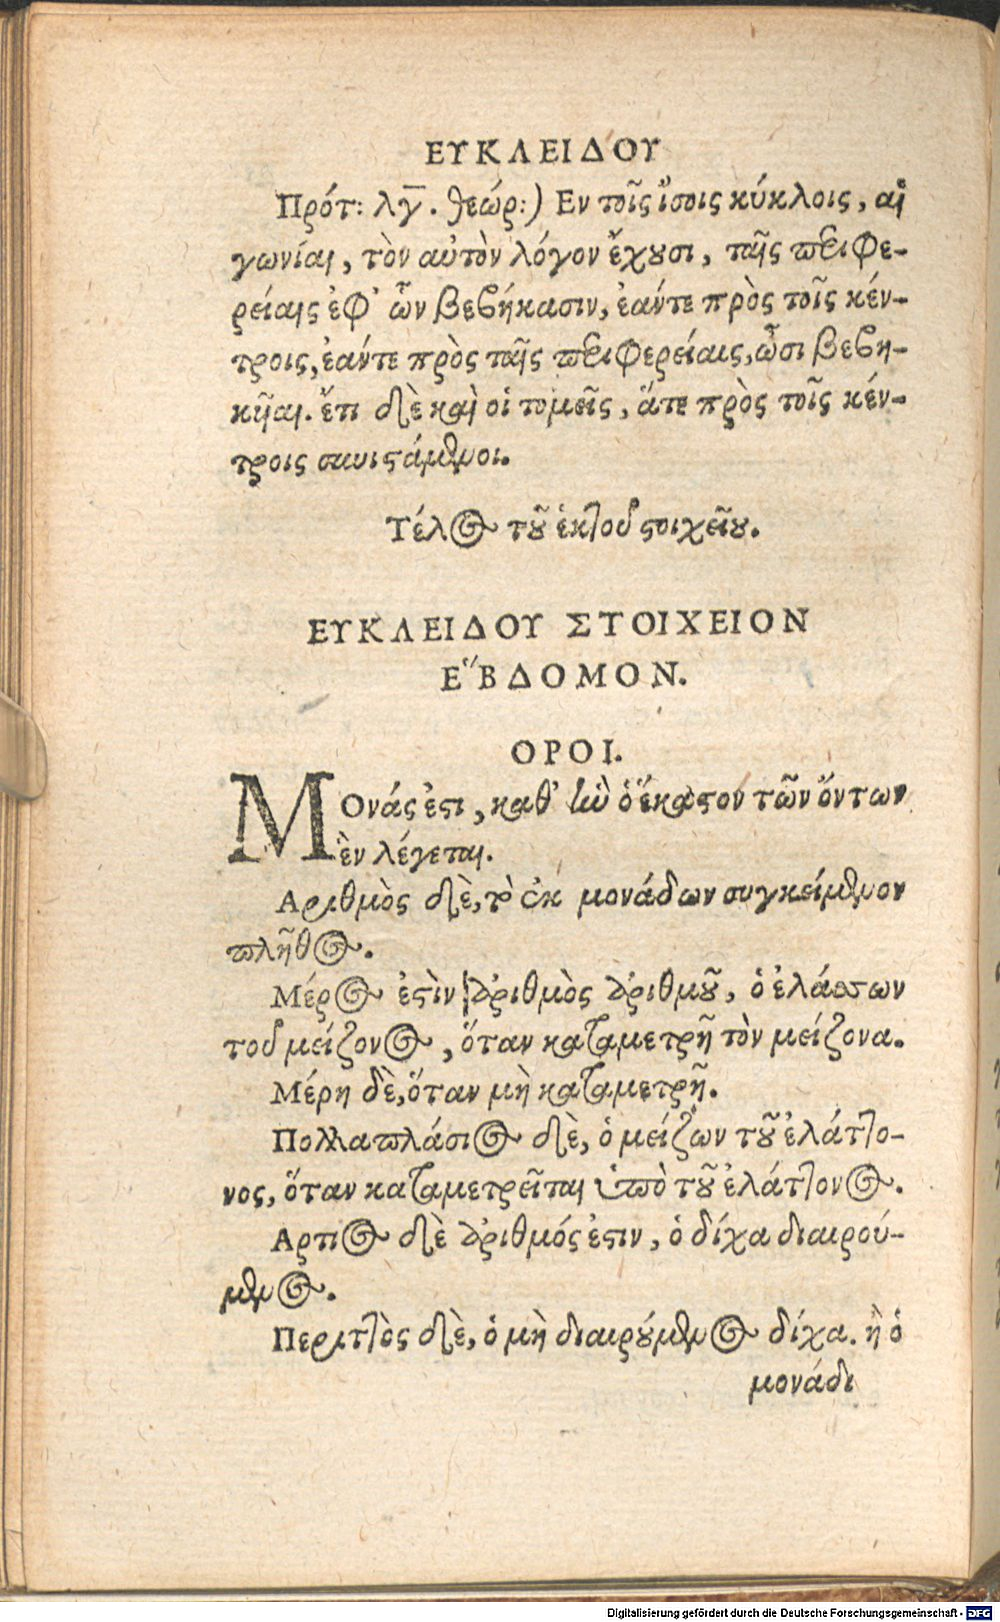 ΕΥΚΛΕΙΔΟΥ
Πρότ: λγ̅. θεώρ:) Εν τοῖς ἴσοις κύκλοις, αἱ
γωνίαι, τὸν αὐτὸν λόγον ἔχουσι, ταῖς περιφε-
ρείαις ἐφ' ὧν βεβήκασιν, ἐάντε πρὸς τοῖς κέν-
τροις, ἐάντε πρὸς ταῖς περιφερείαις, ὦσι βεβη-
κῆαι. ἔτι δὲ καὶ οἱ τομεῖς, ἅτε πρὸς τοῖς κέν-
τροις συνιστάμενοι.
Τέλος τοῦ ἑκτοῦ στοιχείου.
ΕΥΚΛΕΙΔΟΥ ΣΤΟΙΧΕΙΟΝ
ΕʹʹΒΔΟΜΟΝ.
ΟΡΟΙ.
ΜΟνάς ἐστι, καθ' ἣν ὁ ἕκαστον τῶν ὄντων
ἓν λέγεται.
Αριθμὸς δὲ, τὸ ἐκ μονάδων συγκείμενον
πλῆθος.
Μέρος ἐστὶν ἀριθμὸς ἀριθμοῦ, ὁ ἐλάσσων
τοῦ μείζονος, ὅταν καταμετρῆ τὸν μείζονα.
Μέρη δὲ, ὅταν μὴ καταμετρῆ.
Πολλαπλάσιος δὲ, ὁ μείζων τοῦ ἐλάττο-
νος, ὅταν καταμετρεῖται ὑπὸ τοῦ ἐλάττονος.
Αρτιος δὲ ἀριθμός ἐστιν, ὁ δίχα διαιρού-
μενος.
Περιττὸς δὲ, ὁ μὴ διαιρούμενος δίχα. ἢ ὁ
μονάδι
Digitalisierung gefördert durch die Deutsche Forschungsgemeinschaft - DFG